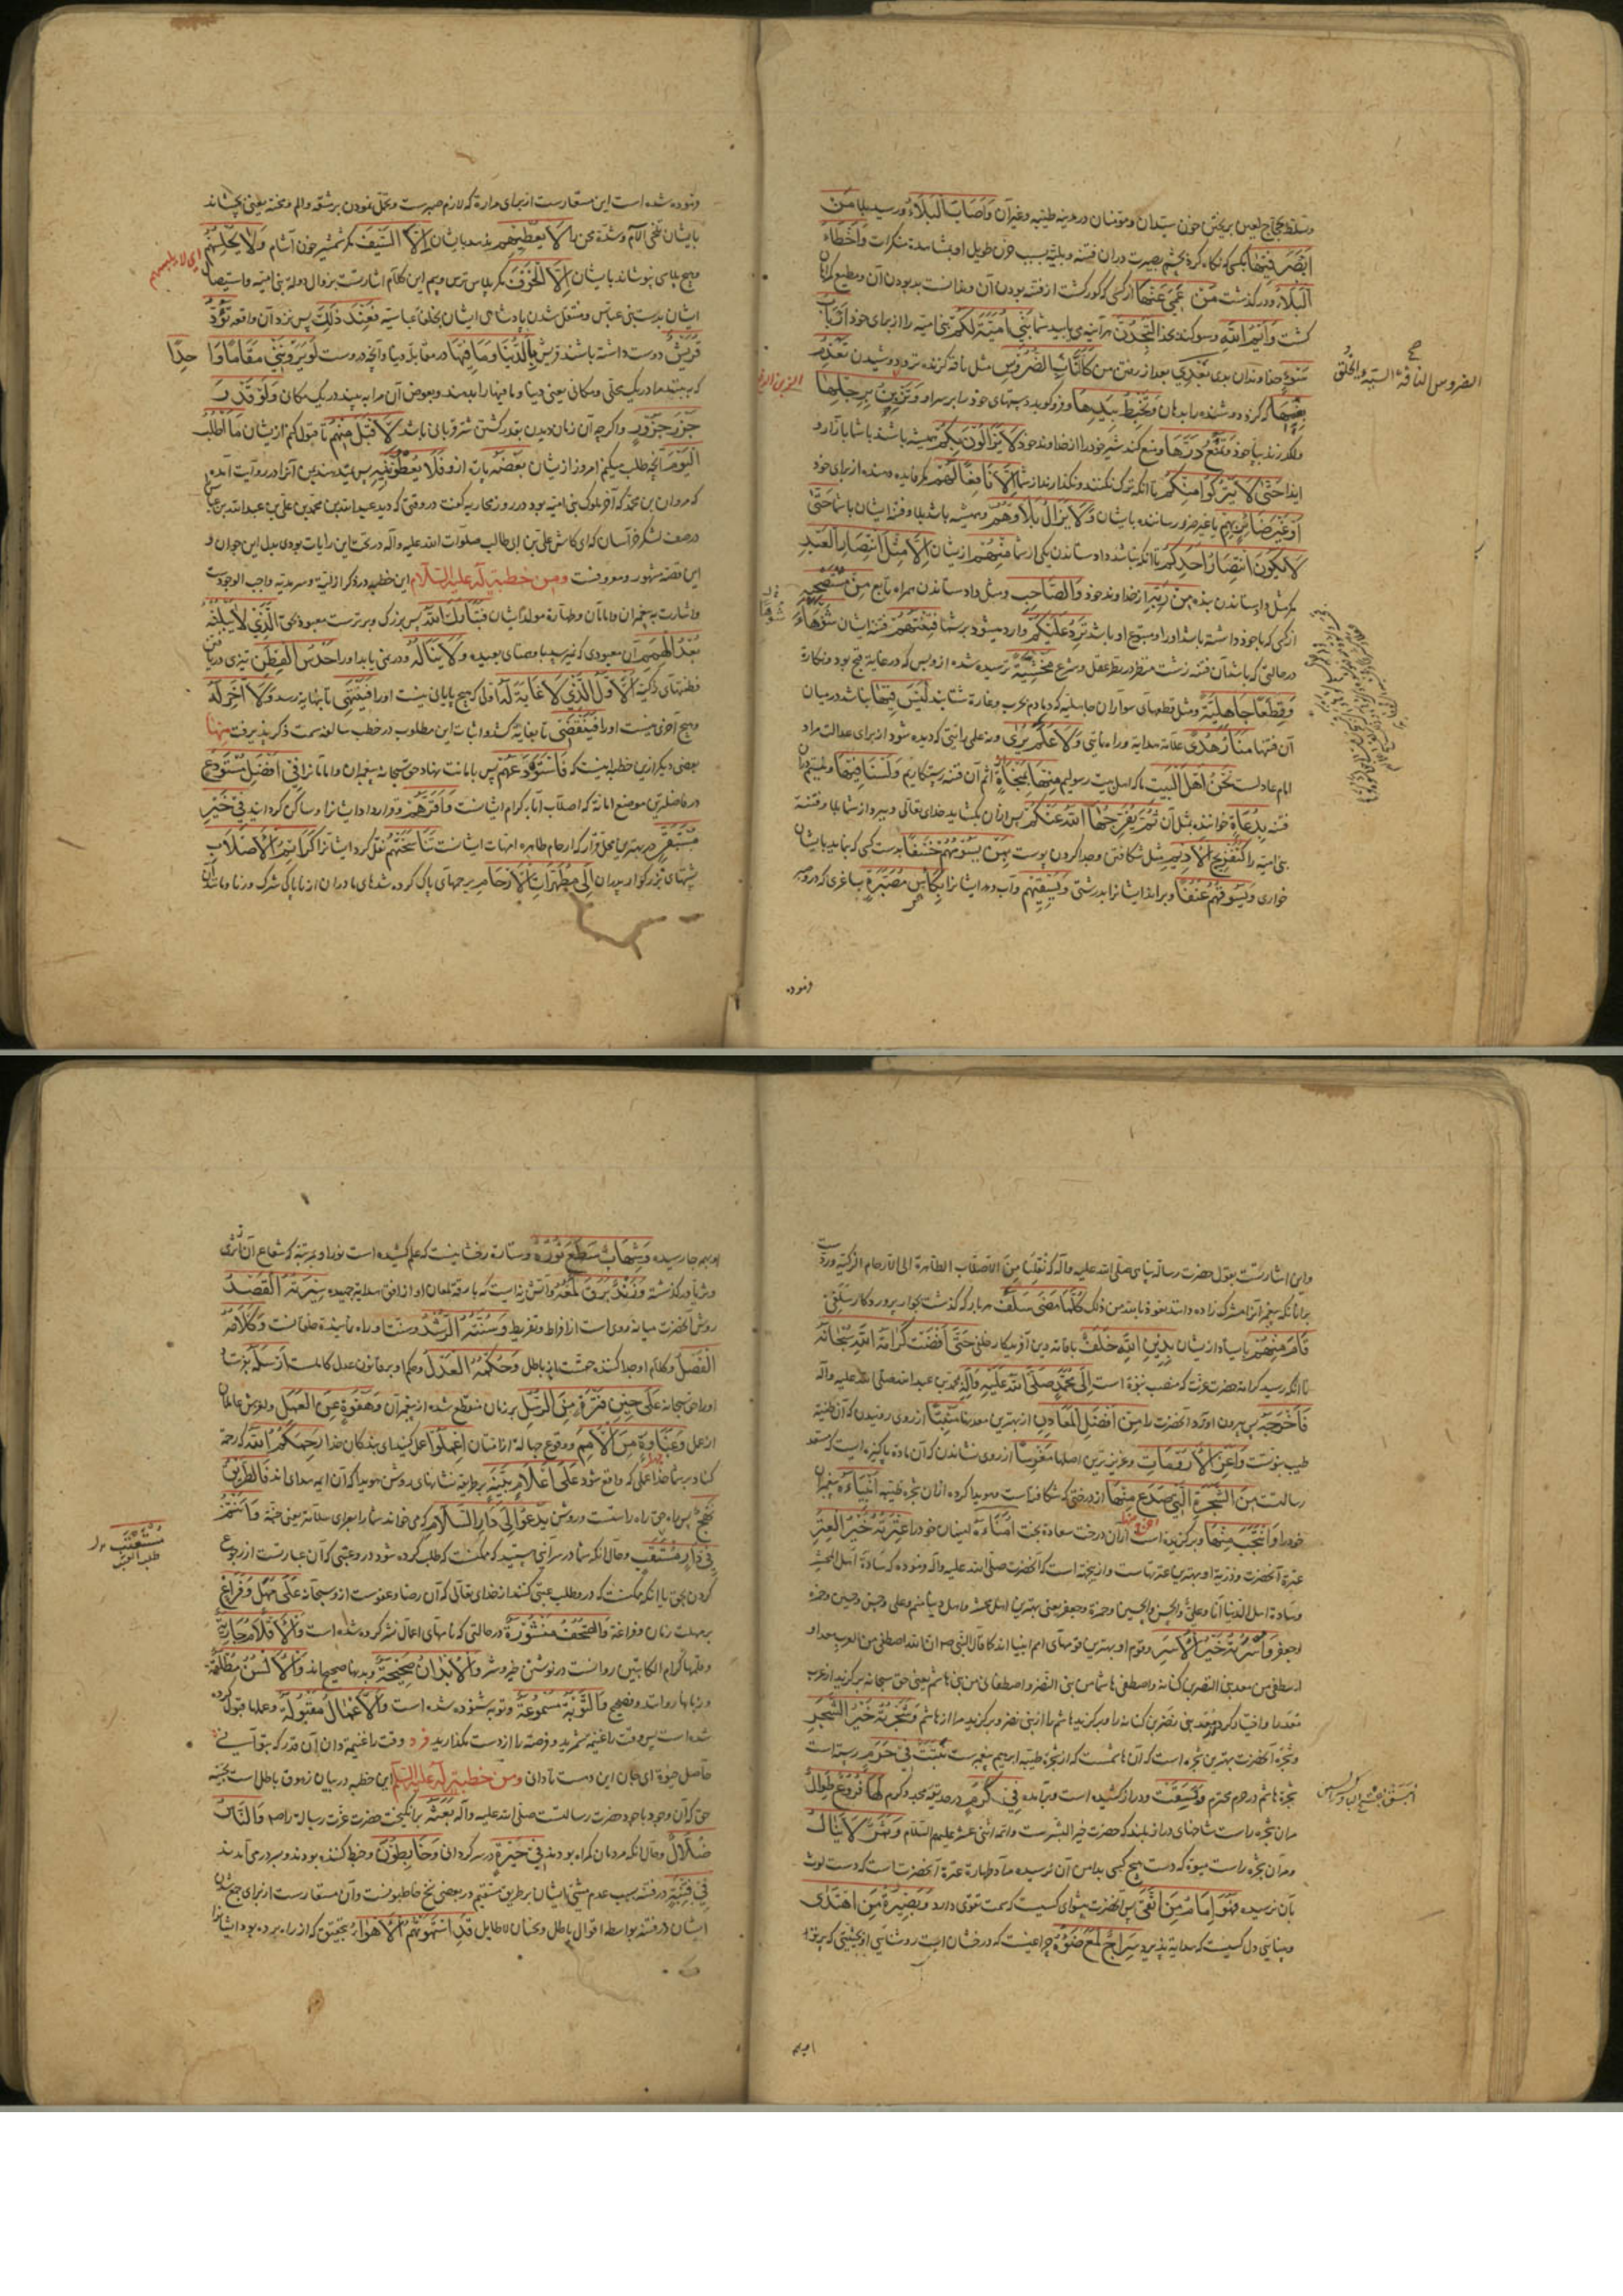 وتسلط حجاج لعین بریختن خون سیدان و مؤمنان در مدینه طیبه و غیر آن وَأَصَابَ الْبَلَاءُ و رسید بلا مَنْ
أَبْصَرَ فِيهَا بکسی که نگاه کرد بچشم بصیرت دران فتنه و بلیّه بسبب حزن طویل او بمشاهدهٔ منکرات وَأَخْطَأَ
الْبَلَاءُ و درگذشت مَنْ عَمِيَ عَنْهَا از کسی که کور گشت از فتنه بودن آن و ندانست بد بودن آن و مطیع
گشت وَأَيْمُ اللهِ و سوگند بخدا لَتَجِدُنَّ هرآینه می یابید شما بَنِي أُمَيَّةَ لَكُمْ بنی امیه را از برای خود أَرْبَابَ
سُوءٍ خداوندان بدی بَعْدِي بعد از رفتن من كَالنَّابِ الضَّرُوسِ مثل ناقه گزنده نزد دوشیدن تَعْذِمُ
بِفِيهَا که گزد دوشنده را بدهان وَتَخْبِطُ بِيَدِهَا و فرو کوبد دستهای خود را بر سر او وَتَزْبِنُ بِرِجْلِهَا
و لگد زند بپای خود وَتَمْنَعُ دَرَّهَا و منع کند شیر خود را از خداوند خود لَا يَزَالُونَ بِكُمْ همیشه باشند با شما بآزار و
ایذا حَتَّى لَا يَتْرُكُوا مِنْكُمْ تا آنکه ترک نکنند و نگذارند از شما إِلَّا نَافِعًا لَهُمْ مگر فایده دهنده از برای خود
أَوْ غَيْرَ ضَائِرٍ بِهِمْ یا غیر ضرر رساننده بایشان وَلَا يَزَالُ بَلَاؤُهُمْ و همیشه باشد بلا و فتنه ایشان با شما حَتَّى
لَا يَكُونَ انْتِصَارُ أَحَدِكُمْ تا آنکه نباشد داد ستاندن یکی از شما مِنْهُمْ از ایشان إِلَّا مِثْلَ انْتِصَارِ الْعَبْدِ
مگر مثل داد ستاندن بنده مِنْ رَبِّهِ از خداوند خود وَالصَّاحِبِ و مثل داد ستاندن همراه تابع مِنْ مُسْتَصْحِبِهِ
از کسی که با خود داشته باشد او را و متبوع او باشد تَرِدُ عَلَيْكُمْ وارد میشود بر شما فِتْنَتُهُمْ فتنه ایشان شَوْهَاءَ
در حالتی که باشد آن فتنه زشت منظر در نظر عقل و شرع مَخْشِيَّةً ترسیده شده از و بس که در غایة قبح بود و نکارة
وَقِطَعًا جَاهِلِيَّةً و مثل قطعهای سواران جاهلیه که دمادم بحرب و غارة شتابند لَيْسَ فِيهَا نباشد در میان
آن فتنها مَنَارُ هُدًى علامة هدایة و راه نمائی وَلَا عَلَمٌ يُرَى و نه علم رایتی که دیده شود از برای عدالت مراد
امام عادلست نَحْنُ أَهْلَ الْبَيْتِ ما که اهل بیت رسولیم مِنْهَا بِمَنْجَاةٍ از اثم آن فتنه رستگاریم وَلَسْنَا فِيهَا
بِدُعَاةٍ خواننده بمثل آن ثُمَّ يُفَرِّجُهَا اللهُ عَنْكُمْ پس ازان بگشاید خدای تعالی و ببرد از شما بلا و فتنه
بنی امیه را كَتَفْرِيجِ الْأَدِيمِ مثل شکافتن و جدا کردن پوست بِمَنْ يَسُومُهُمْ خَسْفًا بدست کسی که بنماید بایشان
خواری وَيَسُوقُهُمْ عُنْفًا و براند ایشانرا بدرشتی وَيَسْقِيهِمْ و آب دهد ایشانرا بِكَأْسٍ مُصَبَّرَةٍ بساغری که درو صبر
فرموده
الضروس الناقة السیّئة الخلق
فرموده شده است این مستعارست از برای مرارة که لازم صبرست و تحمل نمودن بر مشقه و الم و محنه یعنی بچشاند
بایشان تلخی آلام و شدة محن را لَا يُعْطِيهِمْ ندهد بایشان إِلَّا السَّيْفَ مگر شمشیر خون آشام وَلَا يُحْلِسُهُمْ
و هیچ پلاسی نپوشاند بایشان إِلَّا الْخَوْفَ مگر پلاس ترس و بیم این کلام اشارتست بزوال دولة بنی امیه و استیصال
ایشان بدست بنی عباس و منتقل شدن پادشاهی ایشان بخلفای عباسیه فَعِنْدَ ذَلِكَ پس نزد آن واقعه تَوَدُّ
قُرَيْشٌ دوست داشته باشند قریش بِالدُّنْيَا وَمَا فِيهَا در مقابله دنیا و آنچه دروست لَوْ يَرَوْنَنِي مَقَامًا وَاحِدًا
که ببینند مرا در یک محلی و مکانی یعنی دنیا و ما فیها را بدهند و بعوض آن مرا ببینند در یک مکان وَلَوْ قَدْرَ
جَزْرِ جَزُورٍ و اگرچه آن زمان دیدن بقدر کشتن شتر قربانی باشد لِأَقْبَلَ مِنْهُمْ تا قبول کنم از ایشان مَا أَطْلُبُ
الْيَوْمَ آنچه طلب میکنم امروز از ایشان بَعْضَهُ پاره ازو فَلَا يُعْطُونَنِيهِ پس نمیدهند بمن آنرا در روایت آمده
که مروان بن محمد که آخر ملوک بنی امیه بود در روز محاربه گفت در وقتی که دید عبدالله بن محمد بن علی بن عبدالله بن عباس
در صف لشکر خراسان که ای کاش علی بن ابی طالب صلوات الله علیه وآله در تحت این رایات بودی بدل این جوان و
این قصه مشهور و معروفست ومن خطبة له علیه السلام این خطبه در ذکر ازلیة و سرمدیه واجب الوجودست
و اشارت به پیغمبران و امامان و طهارة مولد ایشان فَتَبَارَكَ اللهُ پس بزرگ و برترست معبود بحق الَّذِي لَا يَبْلُغُهُ
بُعْدُ الْهِمَمِ آن معبودی که نمیرسد باو همتهای بعیده وَلَا يَنَالُهُ و در نمی یابد او را حَدْسُ الْفِطَنِ تیزی دریافتن
فطنتهای ذکیه الْأَوَّلُ الَّذِي لَا غَايَةَ لَهُ اولی که هیچ پایانی نیست او را فَيَنْتَهِيَ تا بنهایة رسد وَلَا آخِرَ لَهُ
و هیچ آخری نیست او را فَيَنْقَضِيَ تا بغایة کشد و اثبات این مطلوب در خطب سالفه سمت ذکر پذیرفت منها
بعضی دیگر ازین خطبه اینست که فَاسْتَوْدَعَهُمْ پس بامانت بنهاد حق سبحانه پیغمبران و امامانرا فِي أَفْضَلِ مُسْتَوْدَعٍ
در فاضلترین موضع امانة که اصلاب آباء کرام ایشانست وَأَقَرَّهُمْ و قرار داد ایشانرا و ساکن گردانید فِي خَيْرِ
مُسْتَقَرٍّ در بهترین محل قرار که ارحام طاهره امهات ایشانست تَنَاسَخَتْهُمْ نقل کرد ایشانرا كَرَائِمُ الْأَصْلَابِ
پشتهای بزرگوار پدران إِلَى مُطَهَّرَاتِ الْأَرْحَامِ برحمهای پاک کرده شدهای مادران از ناپاکی شرک و زنا و مانند آن
و این اشارتست بقول حضرت رسالة پناهی صلی الله علیه وآله که نُقِلْنَا مِنَ الْأَصْلَابِ الطاهرة الی الارحام الزکیة
بر آنانکه پیغمبرانرا مشرک زاده دانند نعوذ بالله من ذلک كُلَّمَا مَضَى سَلَفٌ هر بار که گذشت بجوار پروردگار سلفی
قَامَ مِنْهُمْ بایستاد از ایشان بِدِينِ اللهِ خَلَفٌ باقامة دین آفریدگار خلفی حَتَّى أَفْضَتْ كَرَامَةُ اللهِ سُبْحَانَهُ
تا آنکه رسید کرامة حضرت عزت که منصب نبوة است إِلَى مُحَمَّدٍ صَلَّى اللهُ عَلَيْهِ وَآلِهِ بمحمد بن عبدالله صلی الله علیه وآله
فَأَخْرَجَهُ پس بیرون آورد آنحضرت را مِنْ أَفْضَلِ الْمَعَادِنِ از بهترین معدنها مَنْبِتًا از روی روئیدن که آن طینه
طیبه نبوتست وَأَعَزِّ الْأَرُومَاتِ و عزیزترین اصلها مَغْرِسًا از روی نشاندن که آن ماده پاکیزه ایست که مستعد
رسالتست مِنَ الشَّجَرَةِ الَّتِي صَدَعَ مِنْهَا از درختی که شکافته است و هویدا کرده ازان شجره طیبه أَنْبِيَاءَهُ پیغمبران
خود را وَانْتَجَبَ مِنْهَا و برگزیده است ازان درخت سعادة بخت أُمَنَاءَهُ امینان خود را عِتْرَتُهُ خَيْرُ الْعِتَرِ
عترة آنحضرت و ذریة او بهترین عترتهاست و ازینجهة است که آنحضرت صلی الله علیه وآله فرموده که سادة اهل المحشر
و سادة اهل الدنیا انا و علی و الحسن و الحسین و حمزة و جعفر یعنی بهترین اهل محشر و اهل دنیا منم و علی و حسن و حسین و حمزه
و جعفر وَأُسْرَتُهُ خَيْرُ الْأُسَرِ و قوم او بهترین قومهای امم انبیا اند کما قال النبی ص ان الله اصطفی من العرب معد او
اصطفی من معد بنی النضر بن کنانه و اصطفی هاشما من بنی النضر و اصطفانی من بنی هاشم یعنی حق سبحانه برگزید از عرب
معد را و اختیار کرد از معد بنی نضر بن کنانه را و برگزید هاشم را از بنی نضر و برگزید مرا از هاشم وَشَجَرَتُهُ خَيْرُ الشَّجَرِ
و شجره آنحضرت بهترین شجره است که آن هاشمست که از شجره طیبه ابرهیم پیغمبرست نَبَتَتْ فِي حَرَمٍ رسته است
شجره هاشم در حرم محترم وَبَسَقَتْ و دراز کشیده است و برآمده فِي كَرَمٍ در حدیقه مجد و کرم لَهَا فُرُوعٌ طِوَالٌ
مران شجره راست شاخهای دراز بلند که حضرت خیر البشرست و ائمه اثنی عشر علیهم السلام وَثَمَرٌ لَا يُنَالُ
و مران شجره راست میوه که دست هیچ کسی بدامن آن نرسیده مراد طهارة عترة آنحضرتست که دست لوث
بآن نرسیده فَهُوَ إِمَامُ مَنِ اتَّقَى پس آنحضرت پیشوای کسیست که سمت تقوی دارد وَبَصِيرَةُ مَنِ اهْتَدَى
و بینائی دل کسیست که هدایة پذیرد سِرَاجٌ لَمَعَ ضَوْءُهُ چراغیست که درخشان است روشنایی او بحیثیتی که پرتو
او بهمه جا رسیده وَشِهَابٌ سَطَعَ نُورُهُ و ستاره رخشانیست که علم کشیده است نور او بمرتبه که شعاع آن از ثری
و ثریا در گذشته وَزَنْدٌ بَرَقَ لَمْعُهُ و آتش زنه ایست که بارقه لمعان او از افق هدایة جهیده سِيرَتُهُ الْقَصْدُ
روش آنحضرت میانه روی است از افراط و تفریط وَسُنَّتُهُ الرُّشْدُ و سنت او راه نماینده خلقانست وَكَلَامُهُ
الْفَصْلُ و کلام او جدا کننده حقست از باطل وَحُكْمُهُ الْعَدْلُ و حکم او بر قانون عدل کاملست أَرْسَلَهُ بفرستاد
او را حق سبحانه عَلَى حِينِ فَتْرَةٍ مِنَ الرُّسُلِ بر زمان منقطع شده از پیغمبران وَهَفْوَةٍ عَنِ الْعَمَلِ و لغزش عالمان
از عمل وَغَبَاوَةٍ مِنَ الْأُمَمِ و وقوع جهالة از امتان اعْمَلُوا عمل کنید ای بندگان خدا رَحِمَكُمُ اللهُ که رحمة
کناد بر شما خدا عملی که واقع شود عَلَى أَعْلَامٍ بَيِّنَةٍ بر طریقه نشانهای روشن هویدا که آن ایمه هدی اند فَالطَّرِيقُ
نَهْجٌ پس راه حق راه راستست و روشن يَدْعُو إِلَى دَارِ السَّلَامِ که می خواند شما را بسرای سلامة یعنی جنة وَأَنْتُمْ
فِي دَارِ مُسْتَعْتَبٍ و حال آنکه شما در سرائی هستید که ممکنست که طلب کرده شود درو عتبی که آن عبارتست از رجوع
کردن بحق یا آنکه ممکنست که درو طلب عتبی کنند از خدای تعالی که آن رضا و عفوست ازو سبحانه عَلَى مَهَلٍ وَفَرَاغٍ
بر مهلت زمان و فراغة وَالصُّحُفُ مَنْشُورَةٌ در حالتی که نامهای اعمال نشر کرده شده است وَالْأَقْلَامُ جَارِيَةٌ
و قلمها کرام الکاتبین روانست در نوشتن خیر و شر وَالْأَبْدَانُ صَحِيحَةٌ و بدنها صحیح اند وَالْأَلْسُنُ مُطْلَقَةٌ
و زبانها روانند و فصیح وَالتَّوْبَةُ مَسْمُوعَةٌ و توبه شنوده شده است وَالْأَعْمَالُ مَقْبُولَةٌ و عملها قبول کرده
شده است پس وقت را غنیمت شمرید و فرصه را از دست مگذارید فرد وقت را غنیمة دان آن قدر که بتوانی
حاصل حیوة ای جان این دمست تا دانی ومن خطبة له علیه السلم این خطبه در بیان زهوق باطل است بحجته
حق که آن وجود با جود حضرت رسالتست صلی الله علیه وآله بَعَثَهُ برانگیخت حضرت عزت رسالة را ص وَالنَّاسُ
ضُلَّالٌ و حال آنکه مردمان گمراه بودند فِي حَيْرَةٍ در سرگردانی وَحَابِطُونَ و خبط کننده بودند و سر در می آمدند
فِي فِتْنَةٍ در فتنه بسبب عدم مشی ایشان بر طریق مستقیم در بعضی نسخ حاطبونست و آن مستعارست از برای جمع شدن
ایشان در فتنه بواسطه اقوال باطل و سخنان لاطایل قَدِ اسْتَهْوَتْهُمُ الْأَهْوَاءُ بتحقیق که از راه برده بود ایشانرا
مُسْتَعْتَب